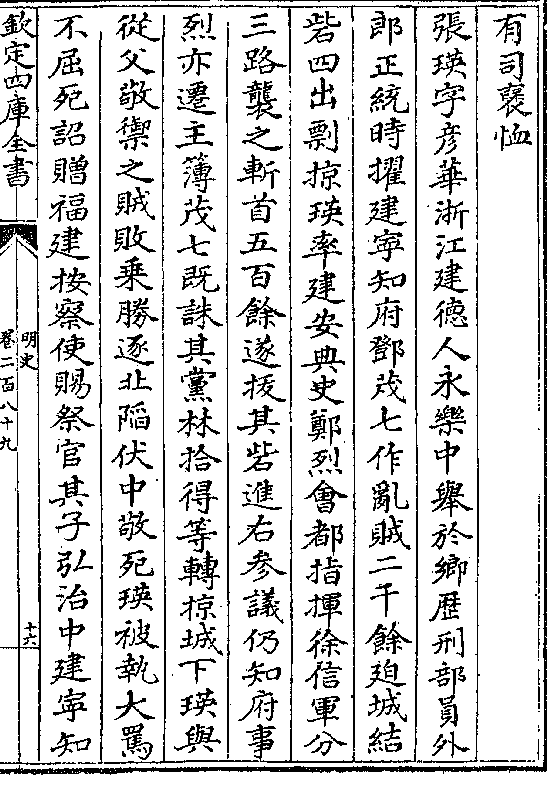 有司襃恤
張瑛字彦華浙江建德人永樂中舉於鄉歴刑部員外
郎正統時擢建寧知府鄧茂七作亂賊二千餘廹城結
砦四出剽掠瑛率建安典史鄭烈會都指揮徐信軍分
三路襲之斬首五百餘遂拔其砦進右參議仍知府事
烈亦遷主簿茂七既誅其黨林拾得等轉掠城下瑛與
從父敬禦之賊敗乗勝逐北陷伏中敬死瑛被執大罵
不屈死詔贈福建按察使賜祭官其子弘治中建寧知
欽定四庫全書
明史
卷二百八十九
十六